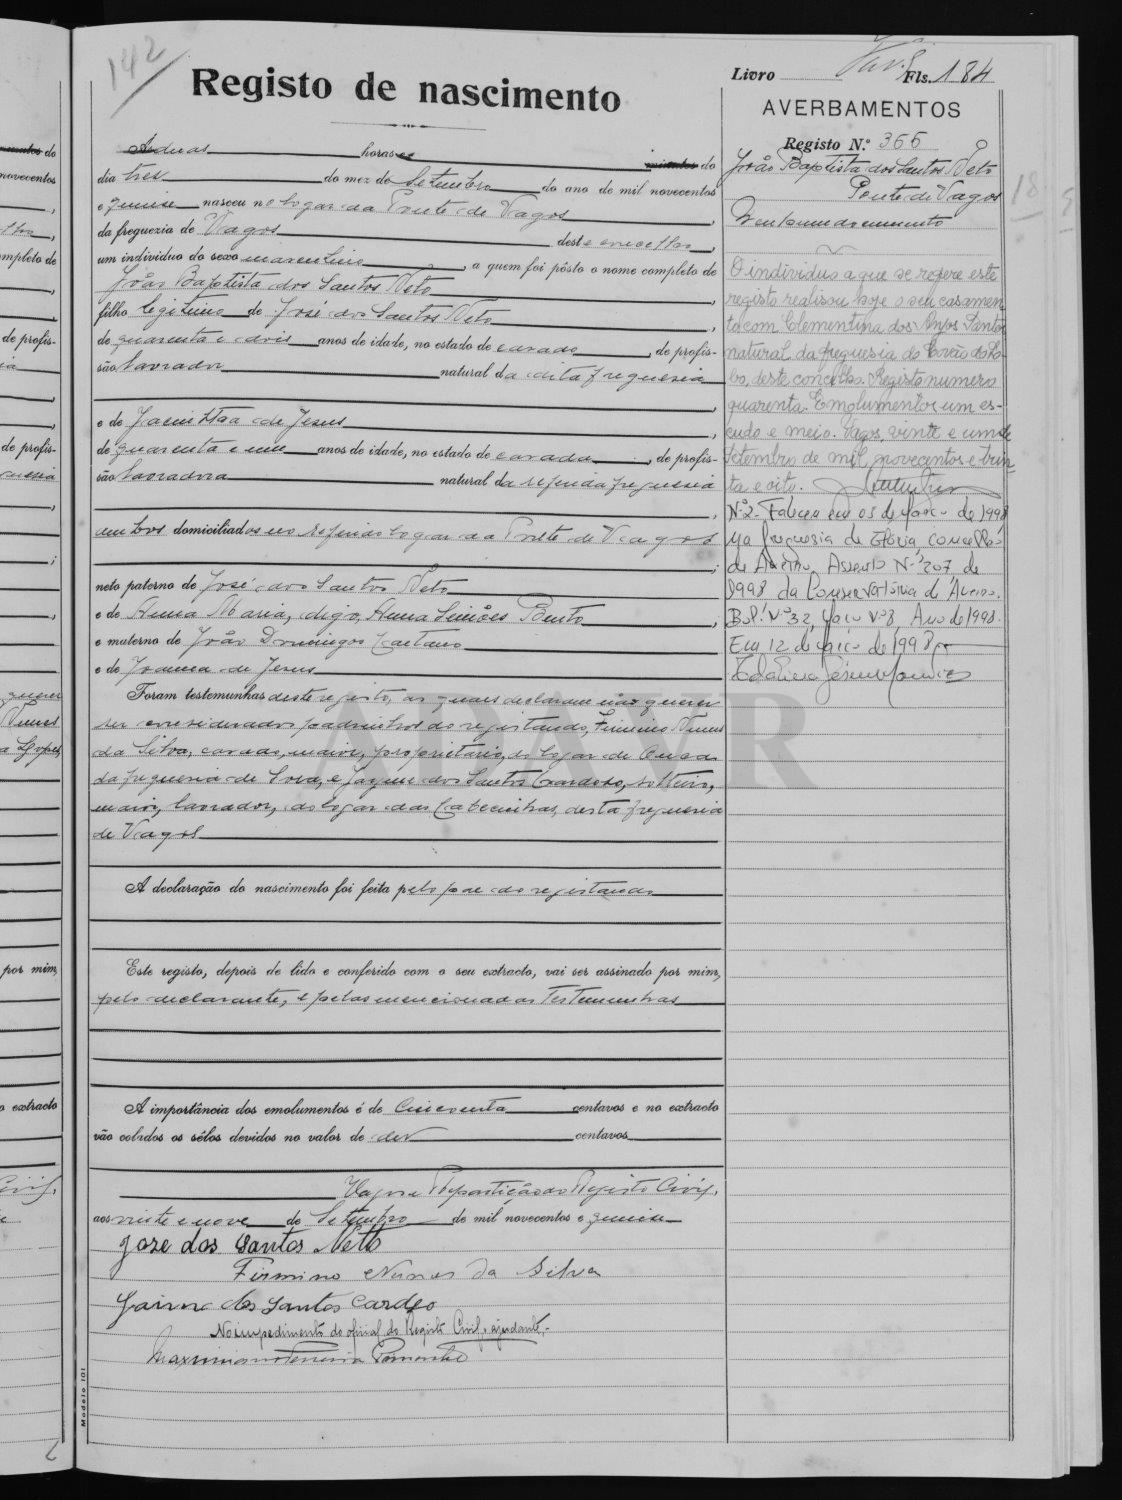 142
Registo de nascimento
Livro Fls. 184
AVERBAMENTOS
Registo N.º 366
João Baptista dos Santos Neto
Ponte de Vagos
Às duas horas do
dia tres do mez de Setembro do ano de mil novecentos
e quinze nasceu no logar da Ponte de Vagos,
da freguezia de Vagos deste concelho,
um individuo do sexo masculino, a quem foi pôsto o nome completo de
João Baptista dos Santos Neto,
filho legitimo de José dos Santos Neto,
de quarenta e dois anos de idade, no estado de casado, de profis-
são lavrador natural da dita freguesia,
e de Jacintha de Jesus,
de quarenta e um anos de idade, no estado de casada, de profis-
são lavradora natural da referida freguesia,
ambos domiciliados no referido logar da Ponte de Vagos;
neto paterno de José dos Santos Neto
e de Anna Maria, digo, Anna Simões Bento,
e materno de João Domingos Caetano
e de Joanna de Jesus
Foram testemunhas deste registo, as quais declaram não querer
ser considerados padrinhos do registando, Firmino Nunes
da Silva, casado, maior, proprietario, do logar de
da freguesia de Soza, e Jayme dos Santos Cardoso, solteiro,
maior, lavrador, do logar das Cabecinhas, desta freguesia
de Vagos
A declaração do nascimento foi feita pelo pae do registando
Este registo, depois de lido e conferido com o seu extracto, vai ser assinado por mim,
pelo declarante, e pelas mencionadas testemunhas
A importância dos emolumentos é de cincoenta centavos e no extracto
vão colados os sêlos devidos no valor de dez centavos
Vagos e Repartição do Registo Civil,
aos vinte e nove de Setembro de mil novecentos e quinze
Jose dos Santos Neto
Firmino Nunes da Silva
Jaime dos Santos Cardoso
No impedimento do oficial do Registo Civil, o ajudante,
Modelo 101
O individuo a que se refere este
registo realisou hoje o seu casamen
to com Clementina dos Anjos Santos
natural da freguesia do Covão do Lo-
bo, deste concelho. Registo numero
quarenta. Emolumentos um es-
cudo e meio. Vagos, vinte e um de
Setembro de mil novecentos e trin-
ta e oito.
Nº2- Faleceu em 03 de Março de 1998
na freguesia de Glória, concelho
de Aveiro. Assento Nº 207 de
1998 da Conservatória de Aveiro.
Bol. nº 32, Março nº 8, Ano de 1998.
Em 12 de Março de 1998